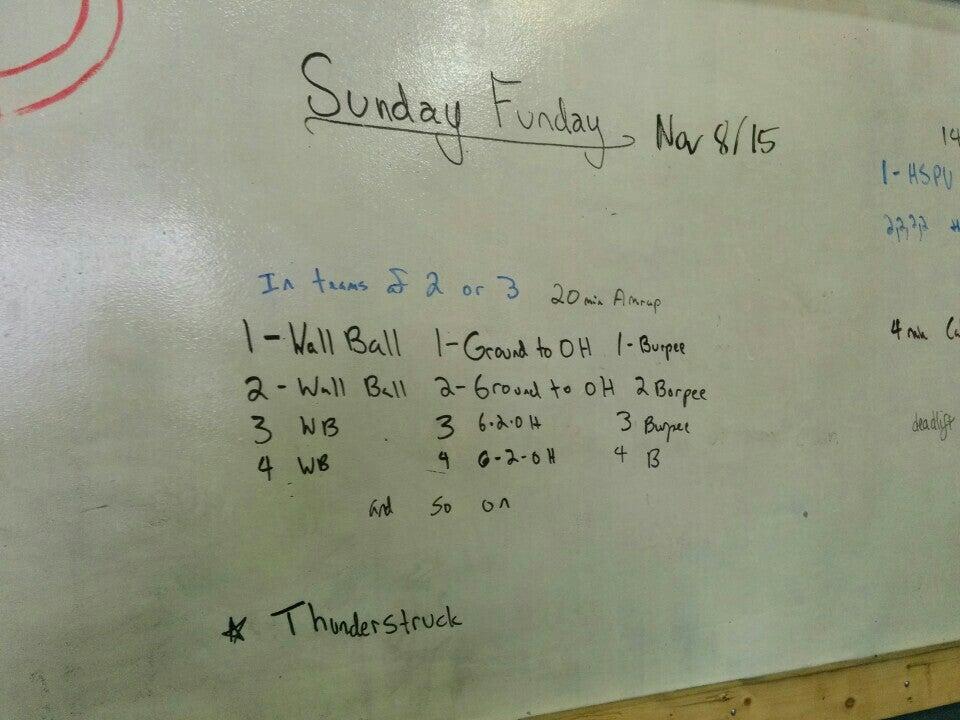 Sunday Funday Nov 8/15
In teams of 2 or 3 20 min Amrap
1 - Wall Ball 1 - Ground to OH 1 - Burpee
2 - Wall Ball 2 - Ground to OH 2 Borpee
3 WB 3 G-2-OH 3 Burpee
4 WB 4 G-2-OH 4 B
and so on
☆ Thunderstruck
14
1 - HSPU
2,2,2,2
4 min
deadlift